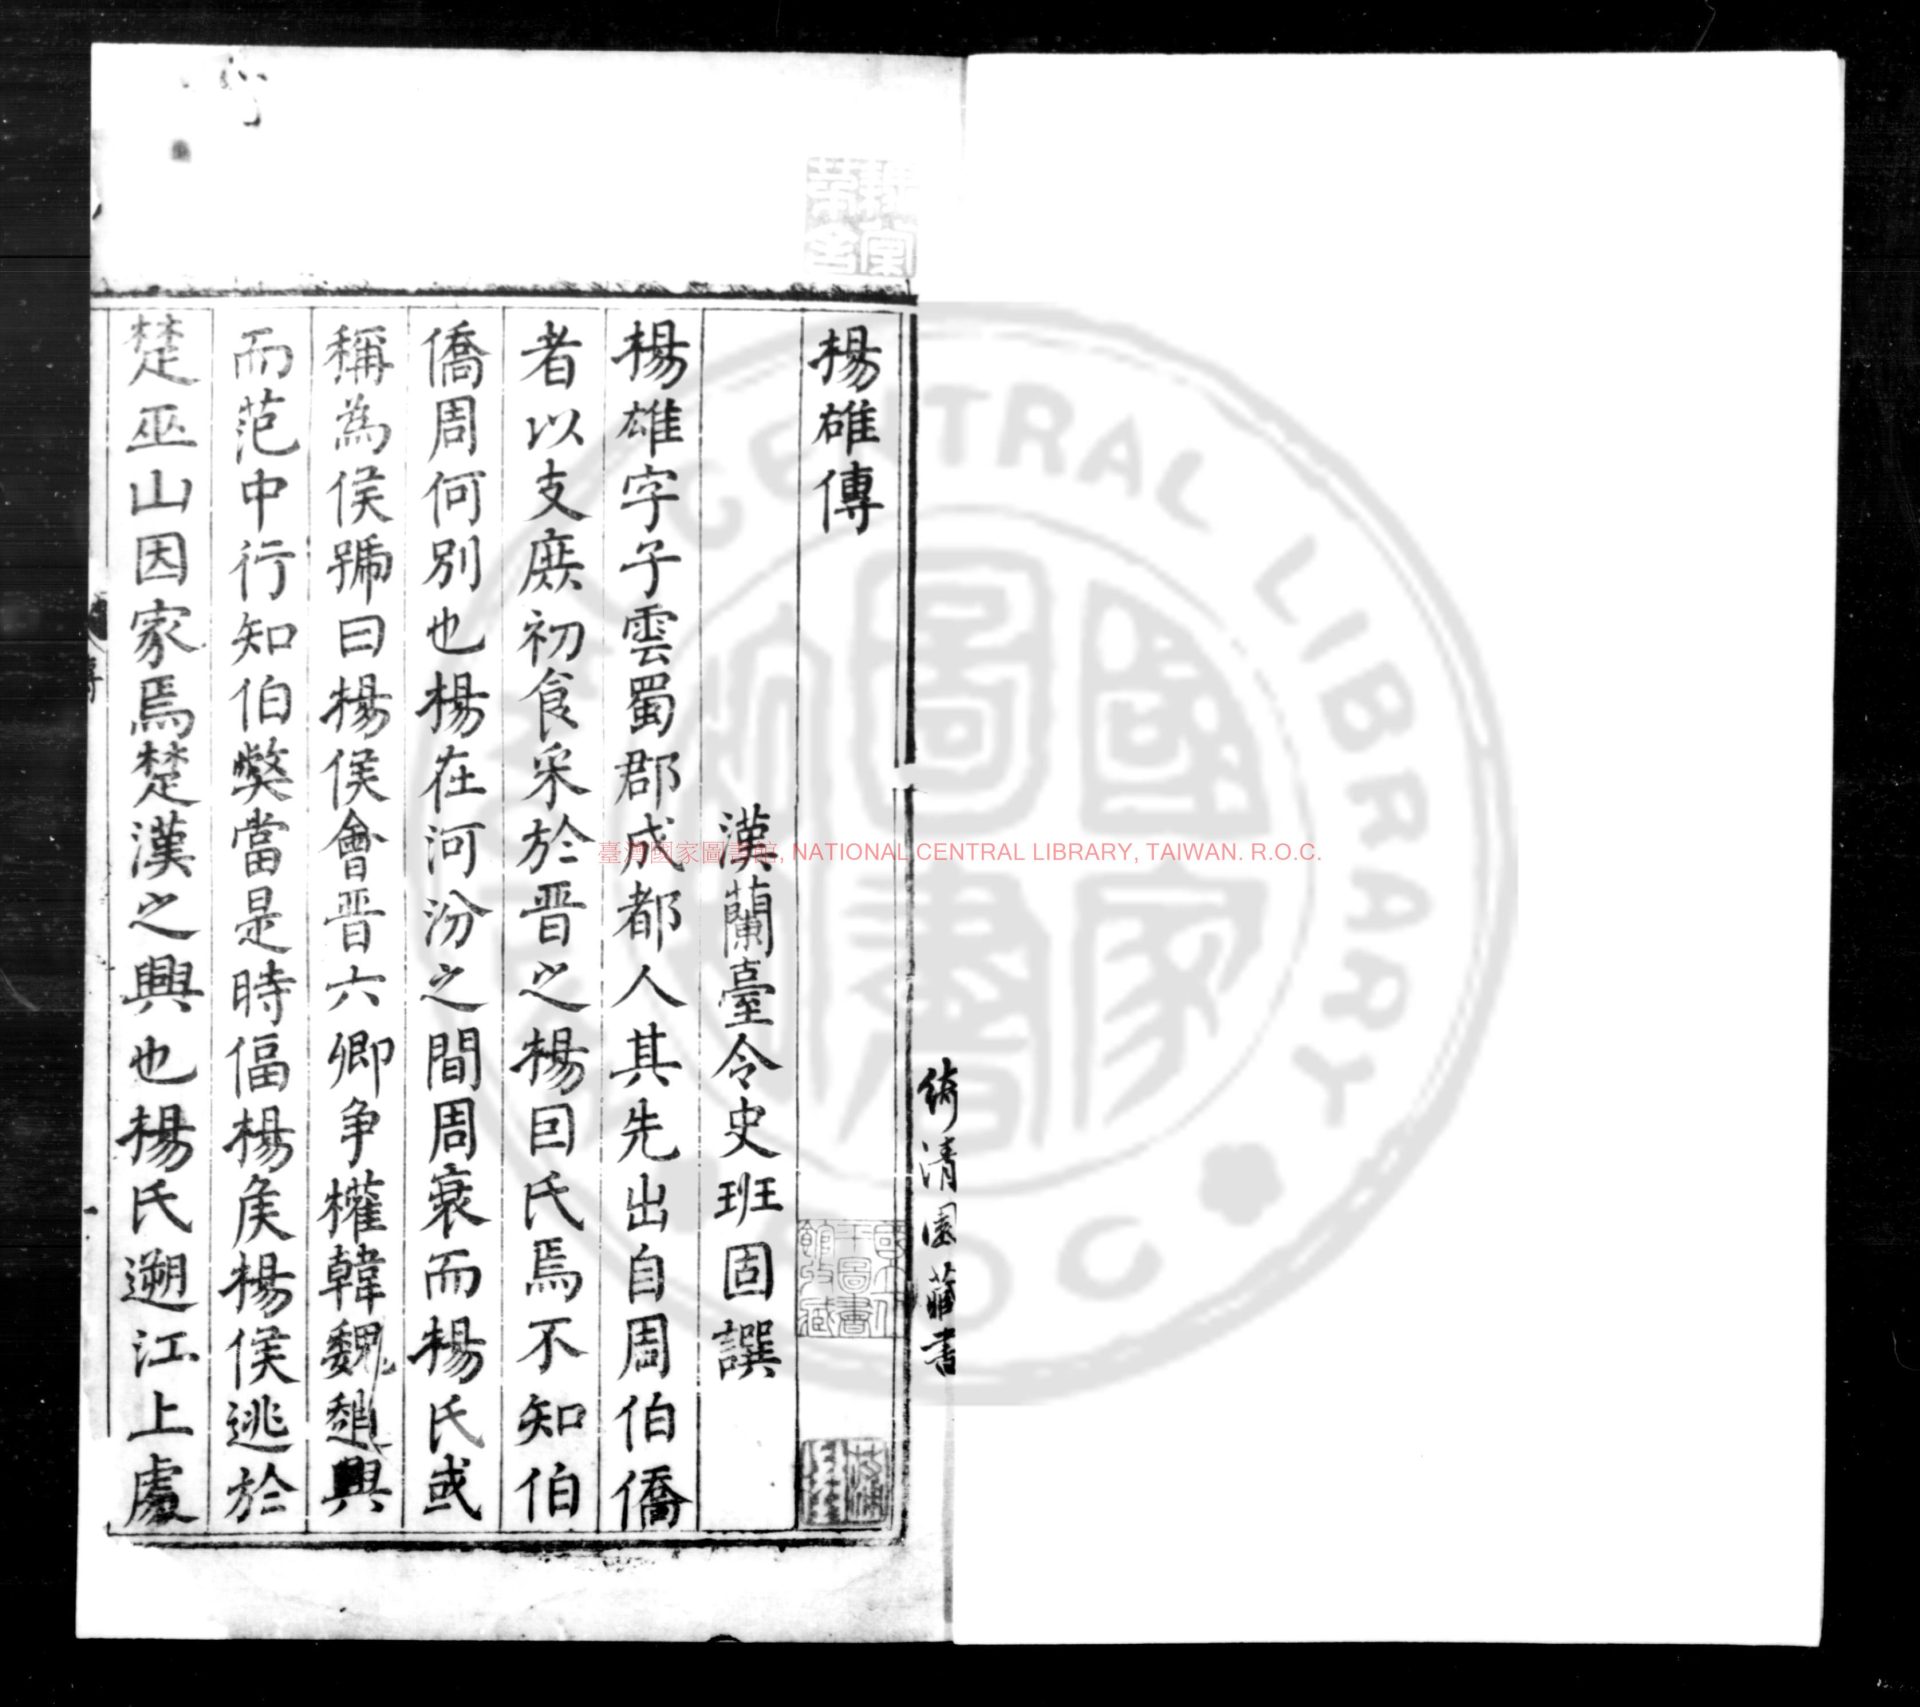 楊雄傳
漢蘭臺令史班固譔
楊雄字子雲蜀郡成都人其先出自周伯僑
者以支庶初食采於晉之楊因氏焉不知伯
僑周何別也楊在河汾之間周衰而楊氏或
稱為侯號曰楊侯會晉六卿争權韓魏趙興
而范中行知伯獘當是時偪楊侯楊侯逃於
楚巫山因家焉楚漢之興也楊氏遡江上處
綺清園藏書
臺灣國家圖書館, NATIONAL CENTRAL LIBRARY, TAIWAN. R.O.C.
CENTRAL LIBRARY
國家圖書
國立中央圖書館收藏